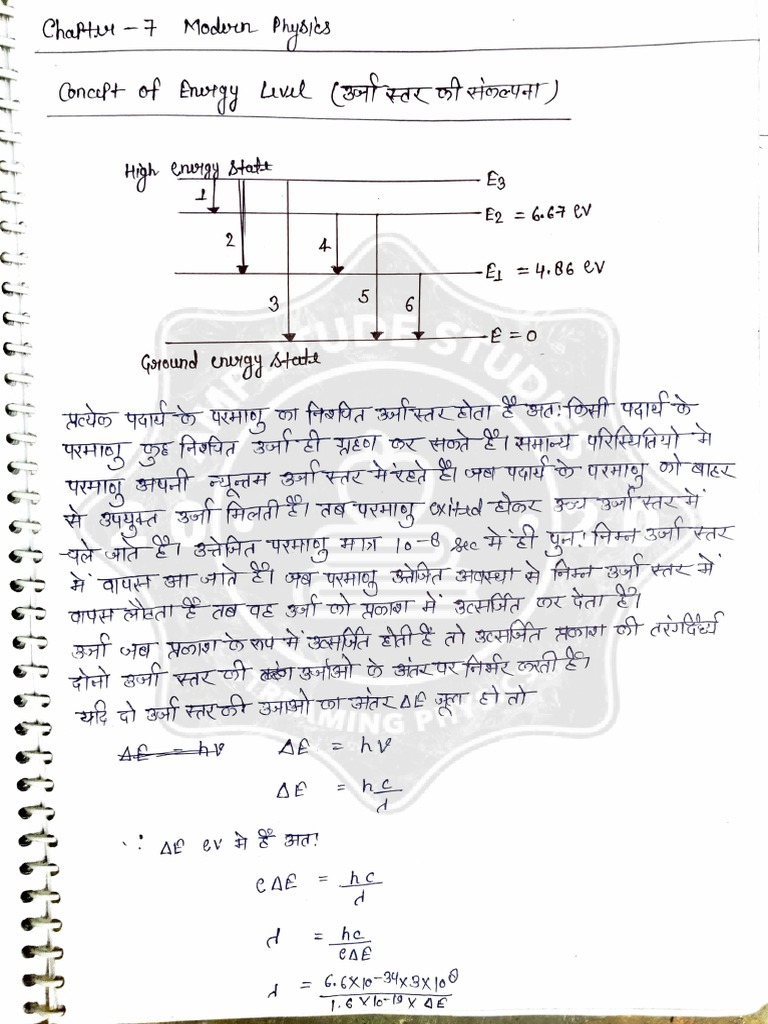 Chapter - 7 Modern Physics
Concept of Energy Level (उर्जा स्तर की संकल्पना)
High energy state
E3
1
E2 = 6.67 eV
2
4
E1 = 4.86 eV
3
5
6
E = 0
Ground energy state
प्रत्येक पदार्थ के परमाणु का निश्चित उर्जा स्तर होता हैं अतः किसी पदार्थ के
परमाणु कुह निश्चित उर्जा ही ग्रहण कर सकते हैं। समान्य परिस्थितियो मे
परमाणु अपनी न्यून्तम उर्जा स्तर मे रहते हैं। जब पदार्थ के परमाणु को बाहर
से उपयुक्त उर्जा मिलती हैं। तब परमाणु exited होकर उच्च उर्जा स्तर में
चले जाते हैं। उत्तेजित परमाणु मात्र 10-8 sec में ही पुनः निम्न उर्जा स्तर
में वापस आ जाते हैं। जब परमाणु उत्तेजित अवस्था से निम्न उर्जा स्तर में
वापस लौटता हैं तब वह उर्जा को प्रकाश में उत्सर्जित कर देता हैं।
उर्जा जब प्रकाश के रूप में उत्सर्जित होती हैं तो उत्सर्जित प्रकाश की तरंगदैर्ध्य
दोनो उर्जा स्तर की उर्जाओ के अंतर पर निर्भर करती हैं।
यदि दो उर्जा स्तर की उर्जाओ का अंतर ΔE जूल हो तो
ΔE = hν ΔE = hν
ΔE = h c/λ
∵ ΔE ev मे हैं अतः
eΔE = hc/λ
λ = hc/eΔE
λ = 6.6×10-34×3×108/1.6×10-19×ΔE
AMPLITUDE STUDIES
STREAMING PHYSICS